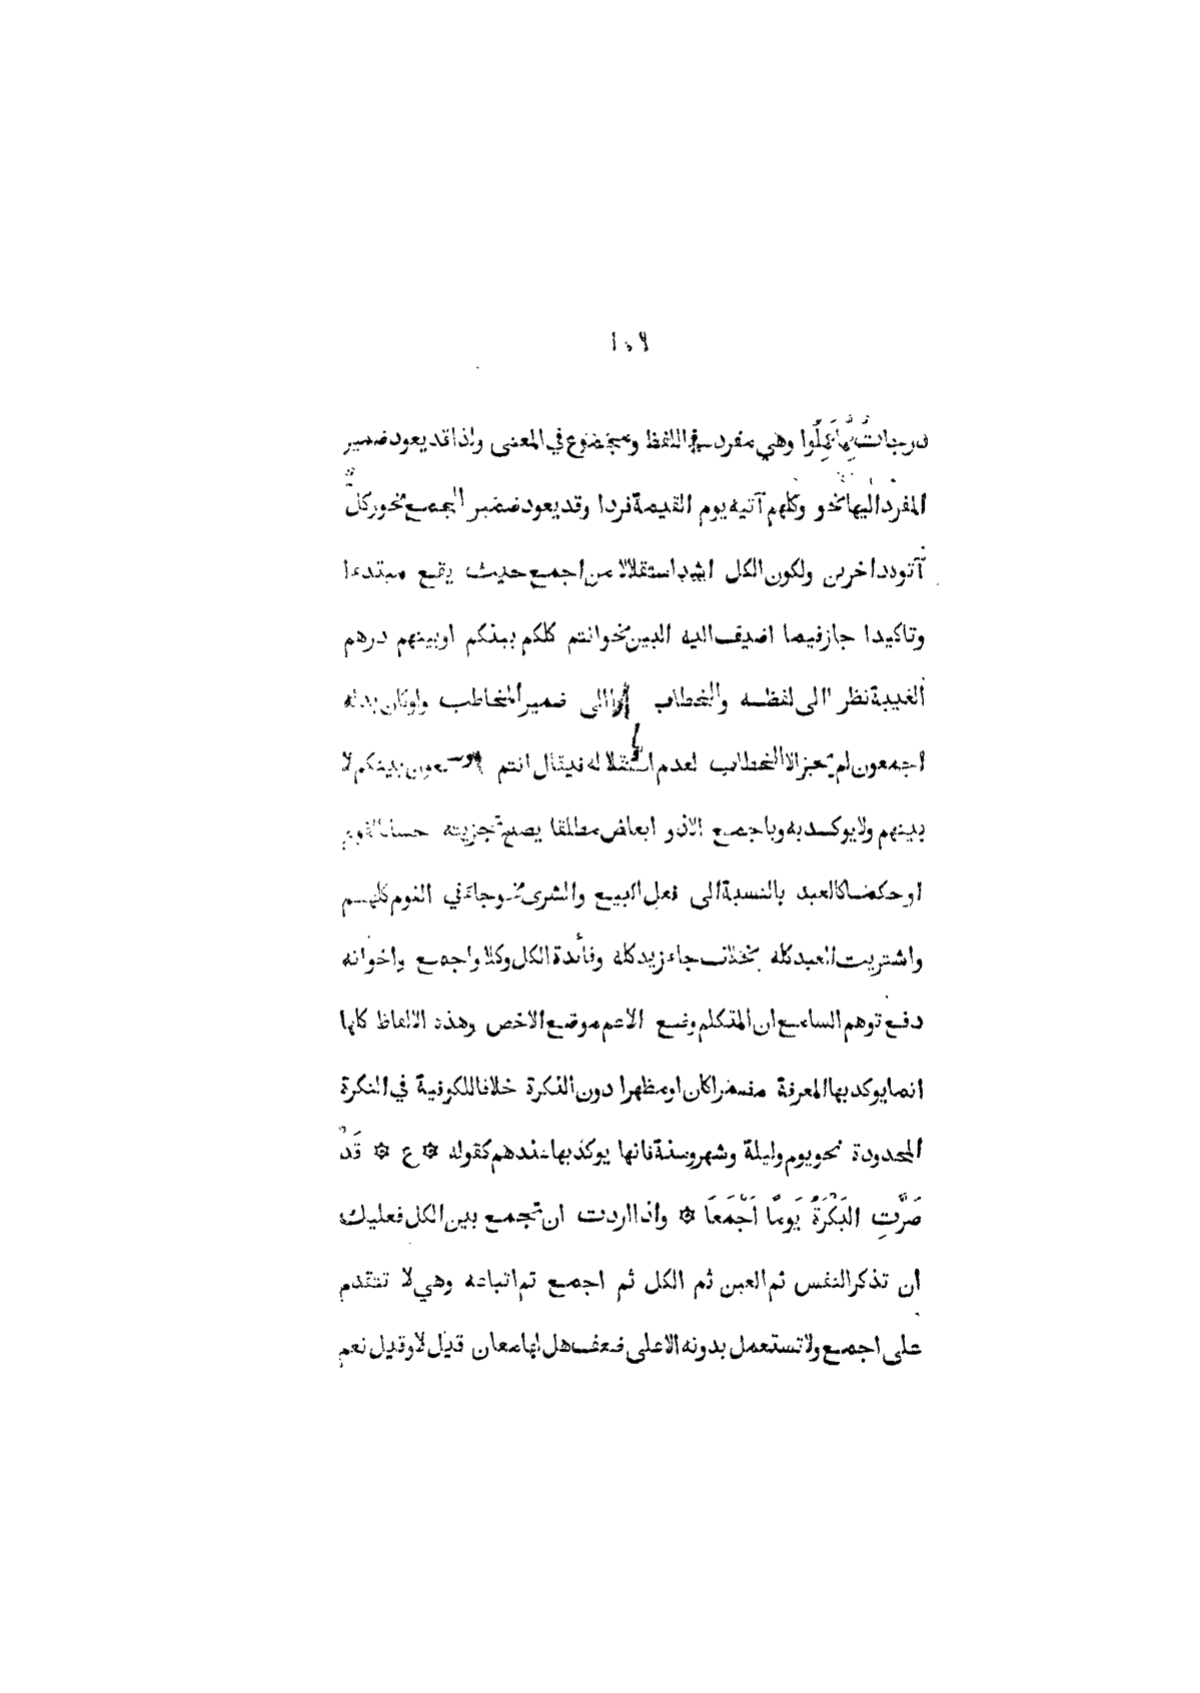 ١٠٩
درجاتٌ مِّمَّا عَمِلُوا وهي مفرد في اللفظ ومجموع في المعنى ولذا قد يعود ضمير
المفرد اليها نحو وكلهم آتيه يوم القيمة فردا وقد يعود ضمير الجمع نحو وكلٌّ
آتوه داخرين ولكون الكل اشد استقلالا من اجمع حيث يقع مبتدءا
وتاكيدا جاز فيما اضيف اليه البين نحو انتم كلكم بينكم او بينهم درهم
الغيبة نظرا الى لفظه والخطاب الى ضمير المخاطب ولو كان بدله
اجمعون لم يجز الا الخطاب لعدم استقلاله فيقال انتم اجمعون بينكم لا
بينهم ولا يوكد به وباجمع الا ذو ابعاض مطلقا يصح تجزيته حسا كالقوم
او حكما كالعبد بالنسبة الى فعل البيع والشرى نحو جاءني القوم كلهم
واشتريت العبد كله بخلاف جاء زيد كله وفائدة الكل وكلا واجمع واخوانه
دفع توهم السامع ان المتكلم وضع الاعم موضع الاخص وهذه الالفاظ كلها
انما يوكد بها المعرفة مضمرا كان او مظهرا دون النكرة خلافا للكوفية في النكرة
المحدودة نحو يوم وليلة وشهر وسنة فانها يوكد بها عندهم كقوله ۞ ع ۞ قَدْ
صَرَّتِ البَكْرَةُ يَومًا اَجْمَعَا ۞ واذا اردت ان تجمع بين الكل فعليك
ان تذكر النفس ثم العين ثم الكل ثم اجمع ثم اتباعه وهي لا تتقدم
على اجمع ولا تستعمل بدونه الا على ضعف هل لها معان قيل لا وقيل نعم